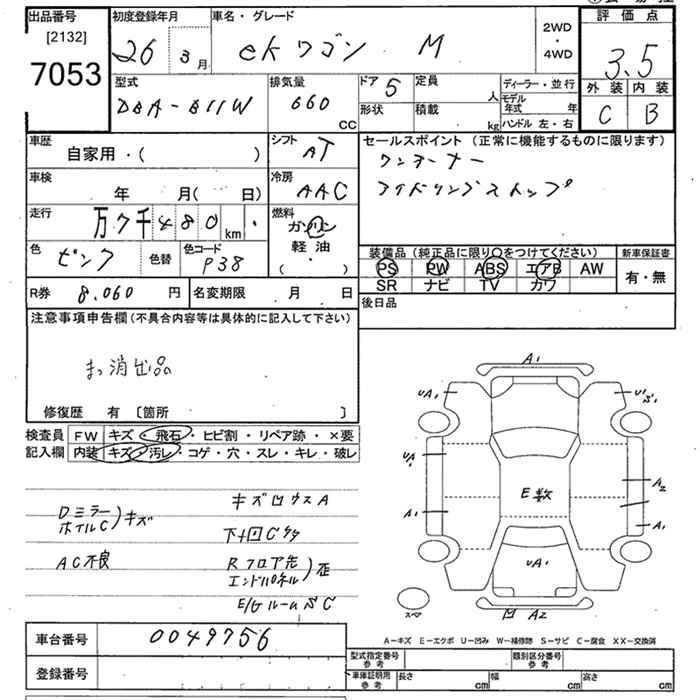 出品番号 初度登録年月 車名・グレード 評価点
[2132]
7053
26 3月
ekワゴン M
2WD
・
4WD
3.5
外装 内装
C B
型式 排気量 ドア 定員 ディーラー・並行
DBA-B11W 660 CC 5 人 モデル年式 年
形状 積載 kg ハンドル 左・右
車歴 シフト セールスポイント(正常に機能するものに限ります)
自家用・( ) AT
ワンオーナー
車検 冷房 アイドリングストップ
年 月( 日) AAC
走行 燃料
万 7千 480 km ガソリン
軽油
( ・ )
色 色替 色コード
ピンク P38
装備品(純正品に限り〇をつけてください) 新車保証書
PS PW ABS エアB AW 有・無
SR ナビ TV カワ
R券 8.060 円 名変期限 月 日
後日品
注意事項申告欄(不具合内容等は具体的に記入して下さい)
修復歴 有 [箇所 ]
検査員 FW キズ・飛石・ヒビ割・リペア跡・×要
記入欄 内装 キズ・汚レ・コゲ・穴・スレ・キレ・破レ
Dミラー
ホイルC)キズ
AC不良
キズ凹ウスA
Rフロア先
エンドパネル)歪
E/GルームSC
A1
UA1
UA1
A1
A2
A1
E数
UA1
スペア
凹 A2
A-キズ E-エクボ U-凹み W-補修跡 S-サビ C-腐食 XX-交換済
車台番号 0049756
登録番号
型式指定番号 参考 類別区分番号 参考
車庫証明用 参考 長さ cm 幅 cm 高さ cm